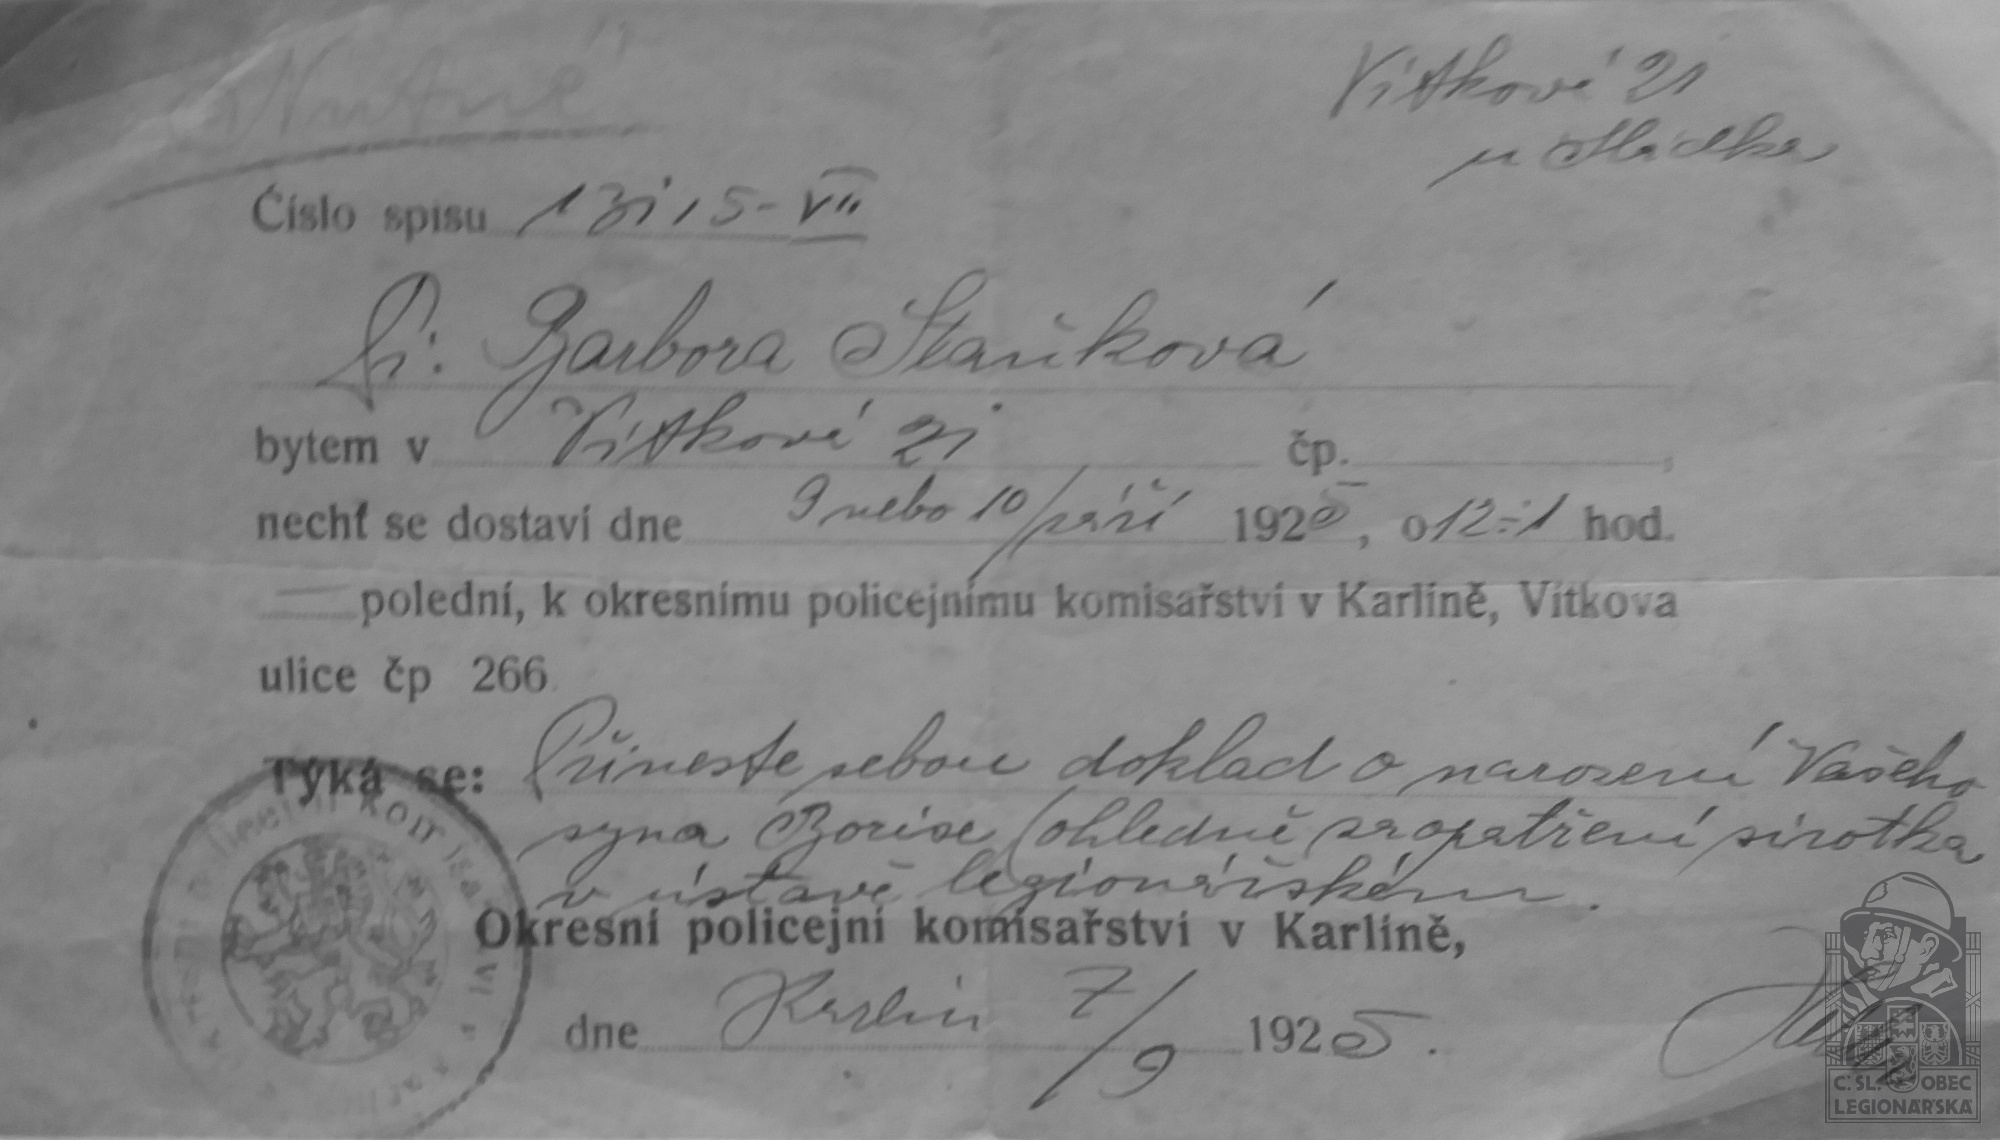 Nutné
Vítkově 21
u Sládka
Číslo spisu 13115-VII
Pí: Barbora Staňková
bytem v Vítkově 21 čp. ,
nechť se dostaví dne 9 nebo 10/září 1925, o 12-1 hod.
polední, k okresnímu policejnímu komisařství v Karlíně, Vítkova
ulice čp 266.
Týká se: Přineste sebou doklad o narození Vašeho
syna Borise (ohledně zaopatření sirotka
v ústavě legionářském.
Okresní policejní komisařství v Karlíně,
dne Karlín 7/9 1925.
Č. SL. OBEC
LEGIONÁŘSKÁ